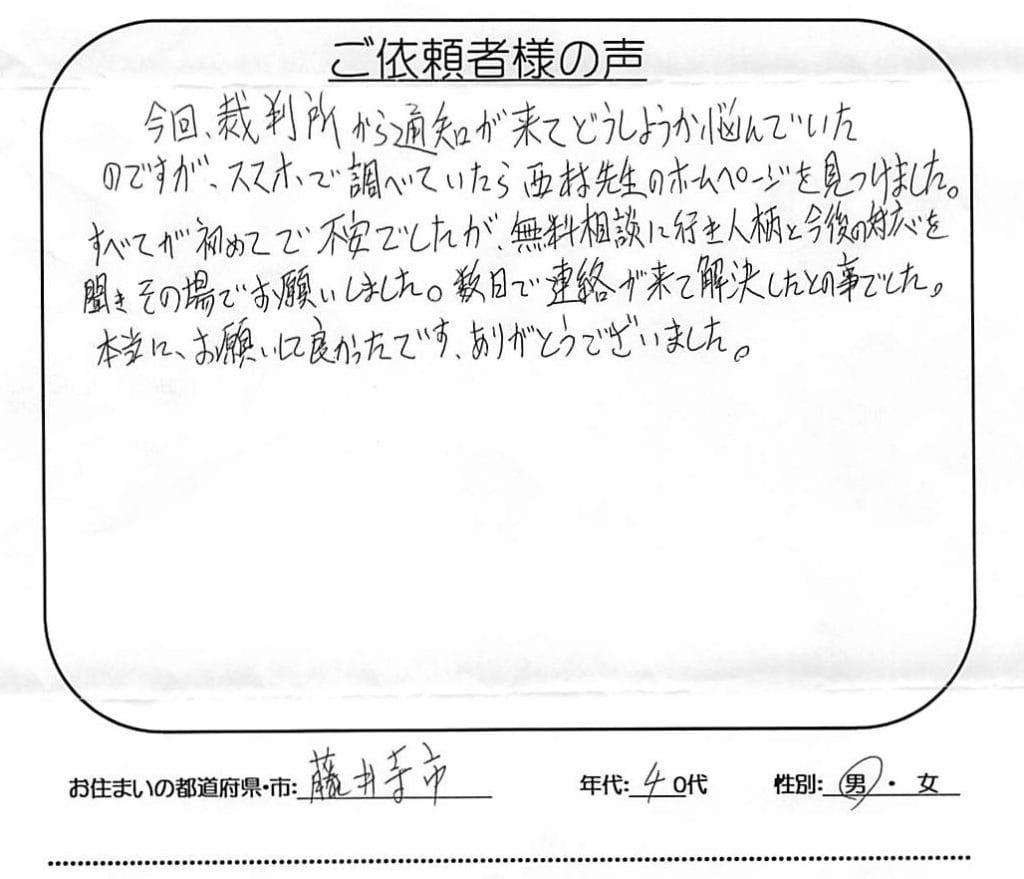 ご依頼者様の声
今回、裁判所から通知が来てどうしようか悩んでいた
のですが、スマホで調べていたら西村先生のホームページを見つけました。
すべてが初めてで不安でしたが、無料相談に行き人柄と今後の対応を
聞きその場でお願いしました。数日で連絡が来て解決したとの事でした。
本当に、お願いして良かったです、ありがとうございました。
お住まいの都道府県・市: 藤井寺市 年代: 40代 性別: 男 ・ 女